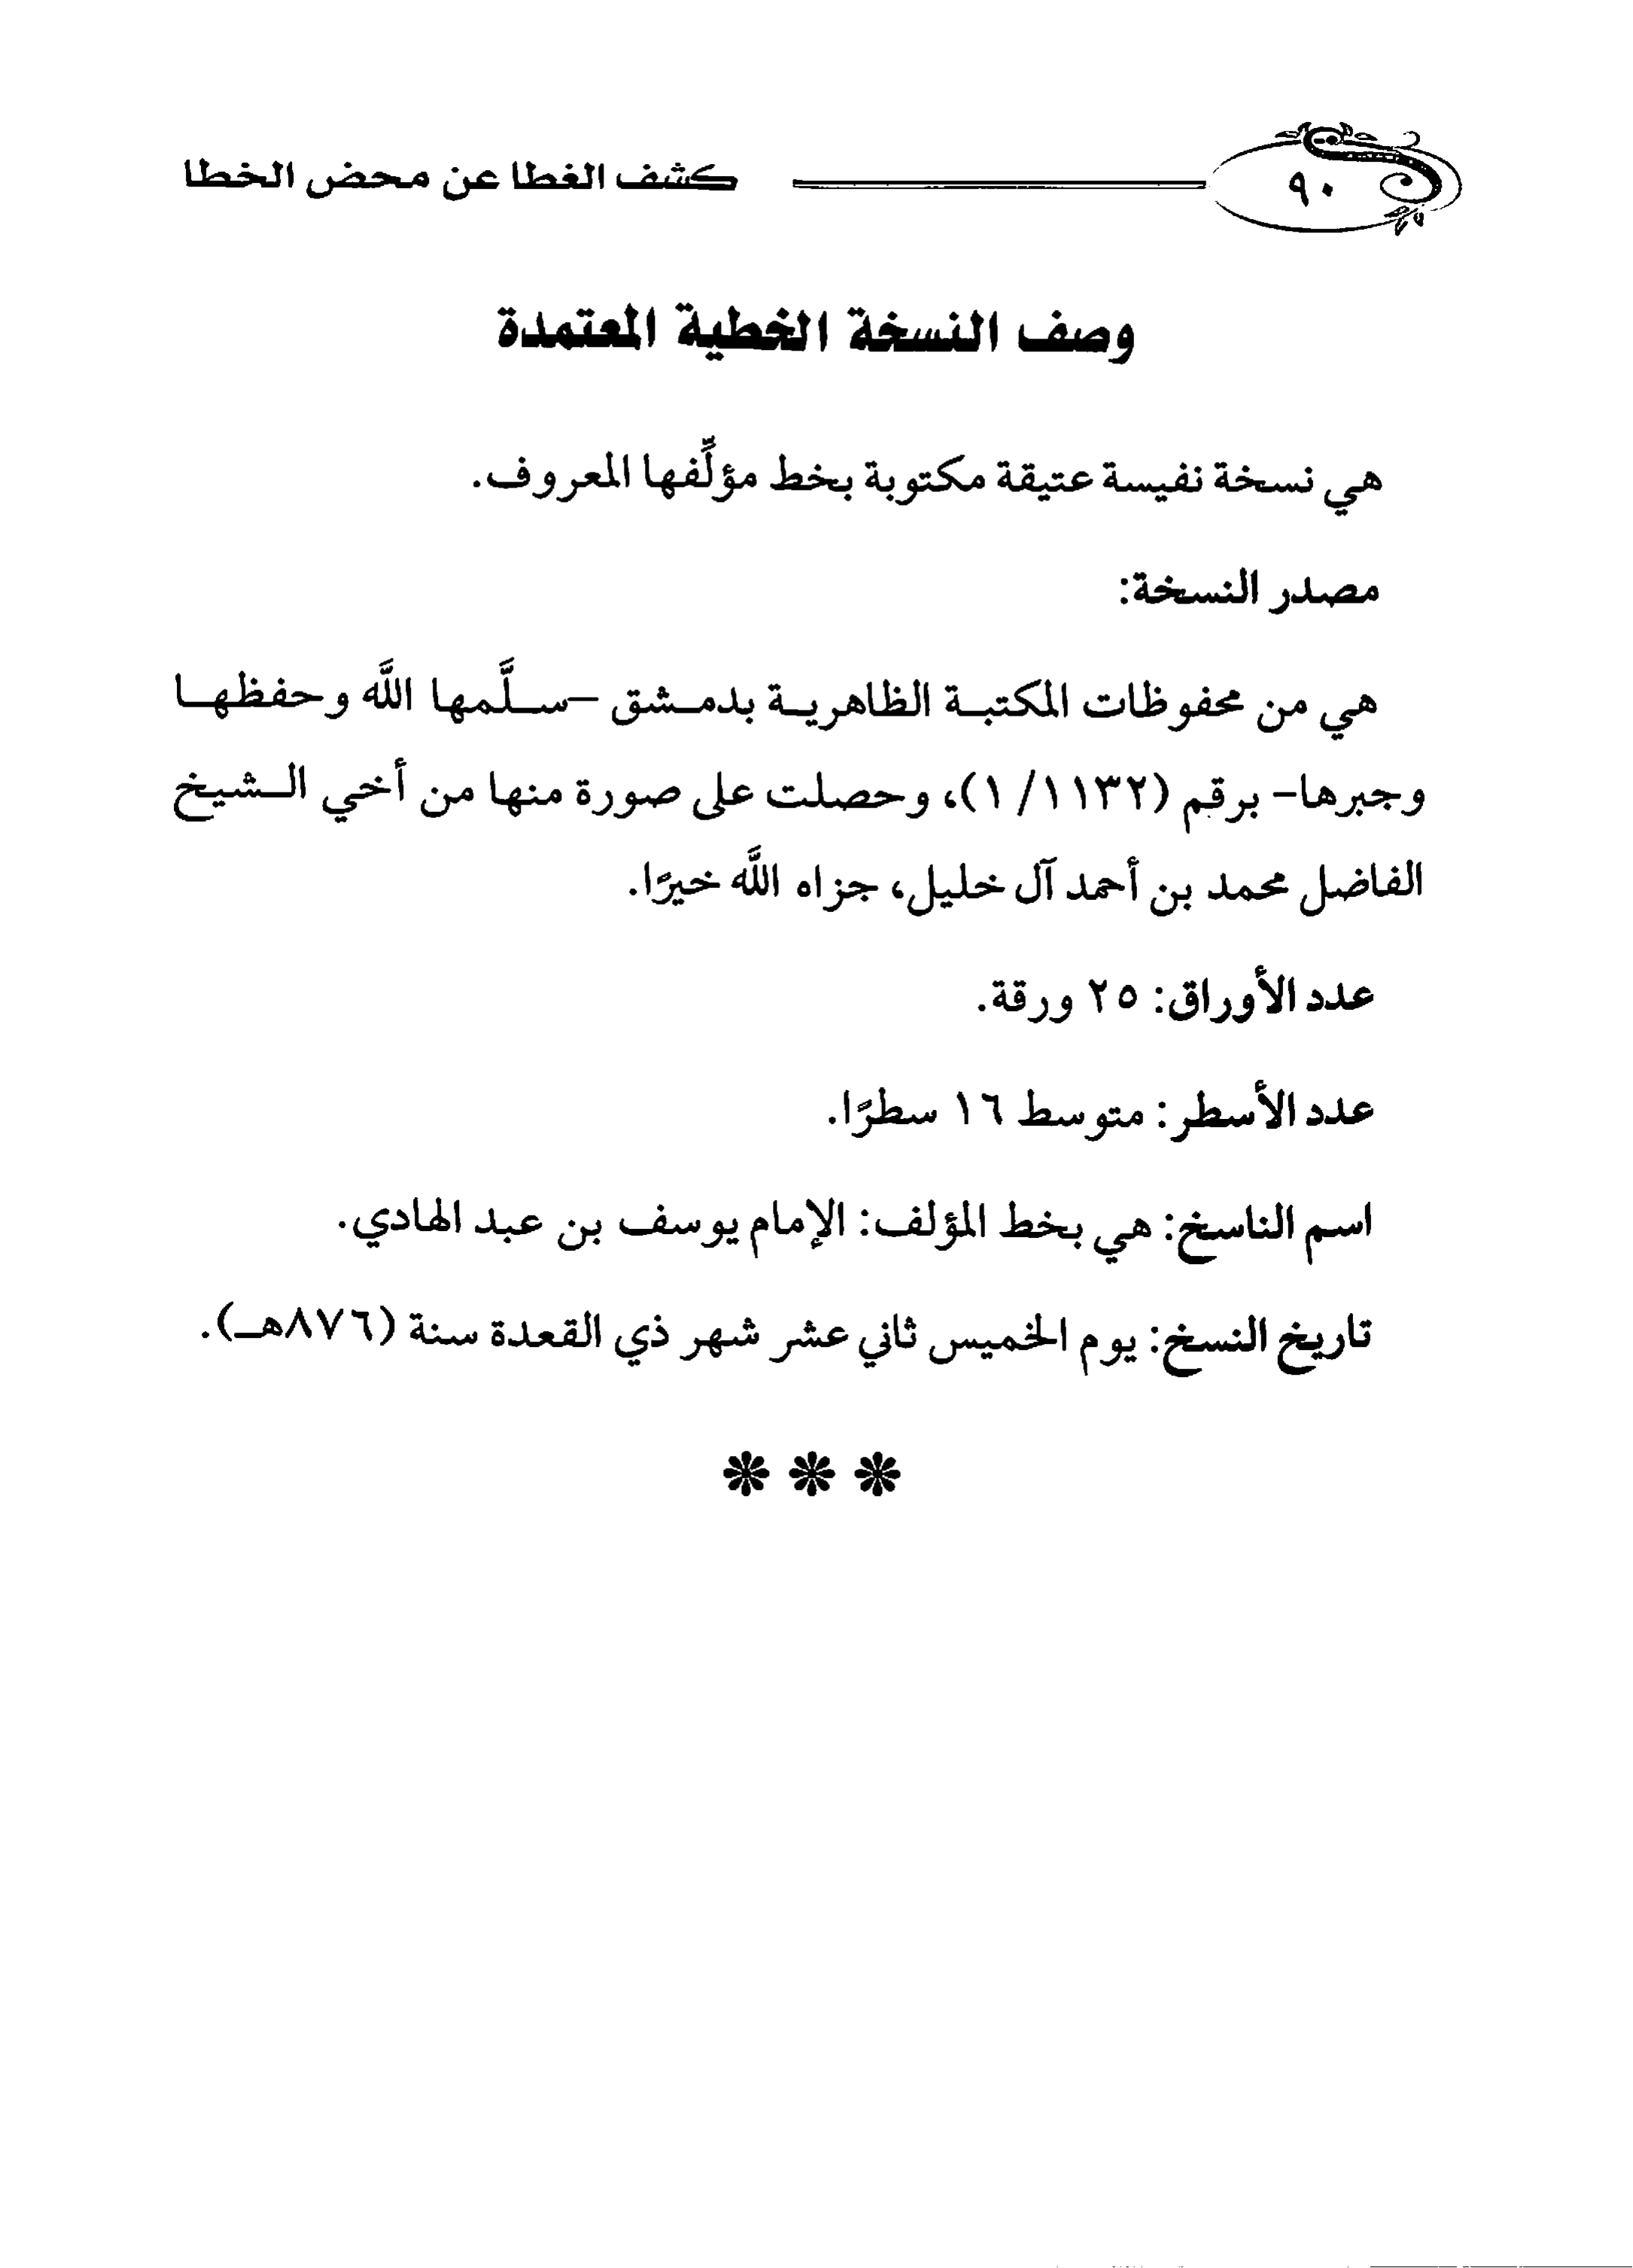 ٩٠ كشف الغطا عن محض الخطا
وصف النسخة الخطية المعتمدة
هي نسخة نفيسة عتيقة مكتوبة بخط مؤلِّفها المعروف.
مصدر النسخة:
هي من محفوظات المكتبة الظاهرية بدمشق -سلَّمها اللَّه وحفظها
وجبرها- برقم (١١٣٢/ ١)، وحصلت على صورة منها من أخي الشيخ
الفاضل محمد بن أحمد آل خليل، جزاه اللَّه خيرًا.
عدد الأوراق: ٢٥ ورقة.
عدد الأسطر: متوسط ١٦ سطرًا.
اسم الناسخ: هي بخط المؤلف: الإمام يوسف بن عبد الهادي.
تاريخ النسخ: يوم الخميس ثاني عشر شهر ذي القعدة سنة (٨٧٦هـ).